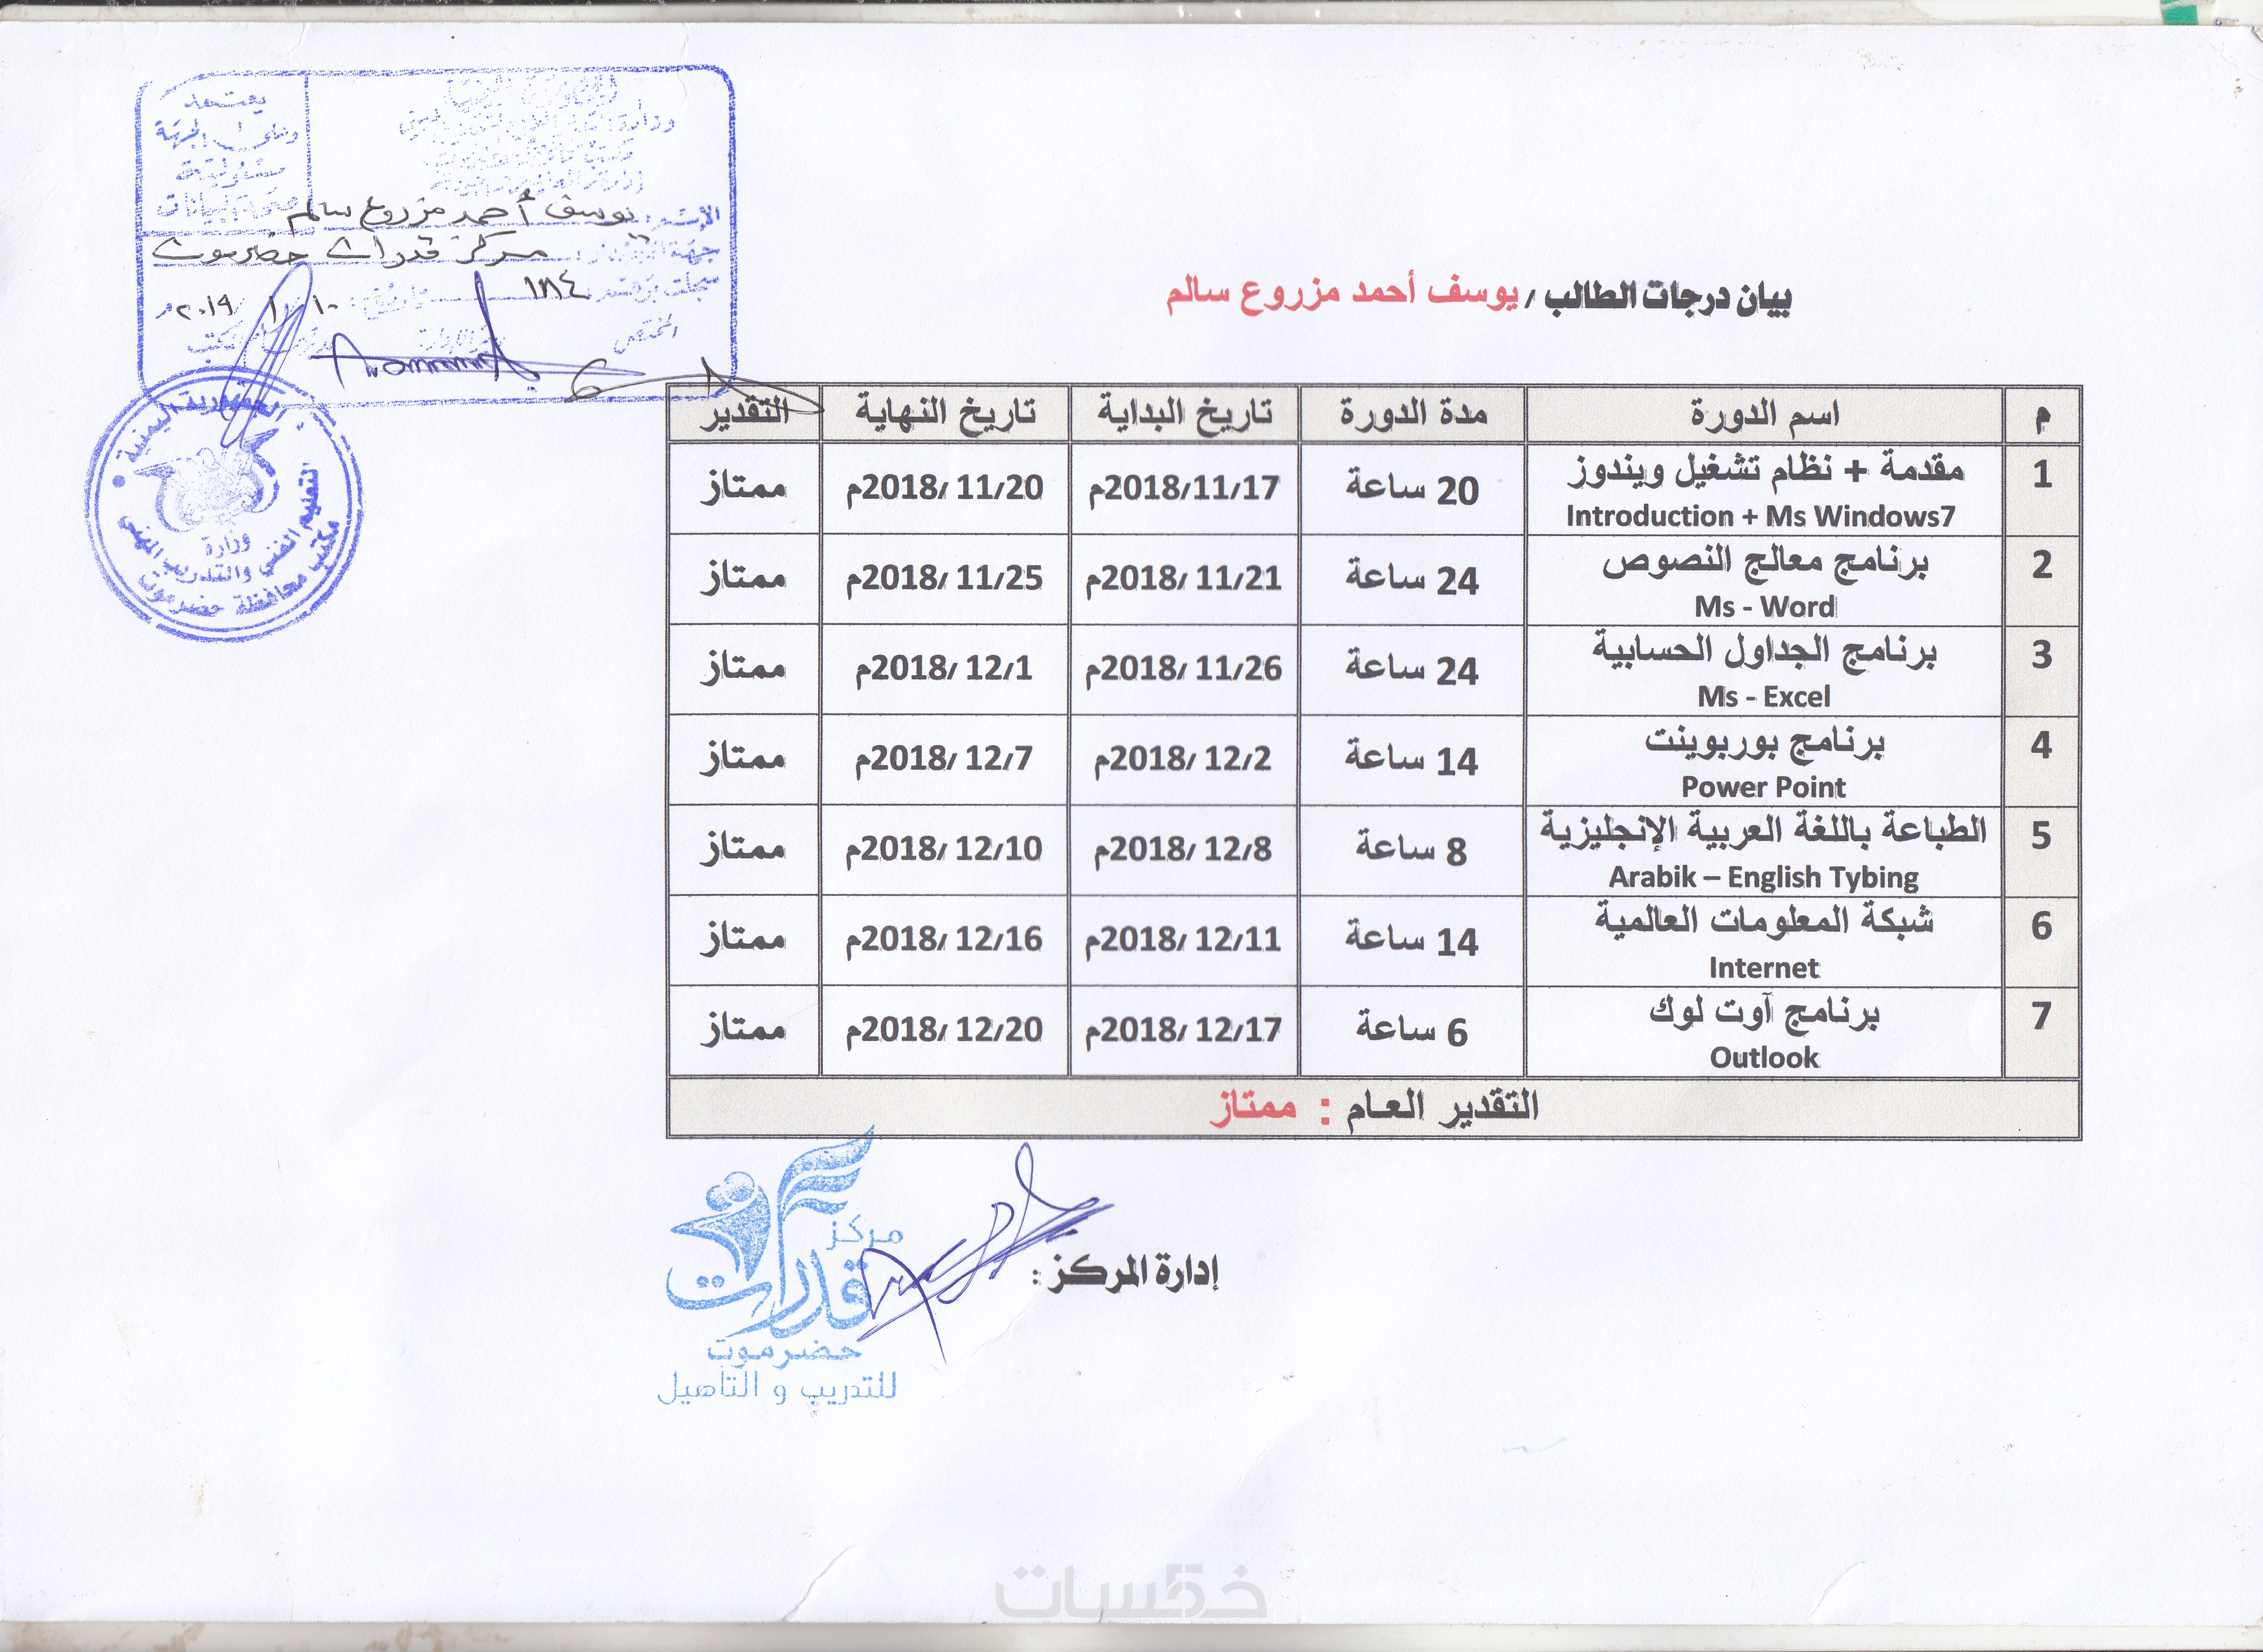 يعتمد
صحة البيانات
الإسم: يوسف أحمد مزروع سالم
مركز قدرات حضرموت
١٨٤
١٠ / ١ / ٢٠١٩م
المختص
الجمهورية اليمنية
وزارة
التعليم الفني والتدريب المهني
مكتب محافظة حضرموت
بيان درجات الطالب / يوسف أحمد مزروع سالم
م اسم الدورة مدة الدورة تاريخ البداية تاريخ النهاية التقدير
1 مقدمة + نظام تشغيل ويندوز 20 ساعة 2018/11/17م 2018/ 11/20م ممتاز
Introduction + Ms Windows7
2 برنامج معالج النصوص 24 ساعة 2018/ 11/21م 2018/ 11/25م ممتاز
Ms - Word
3 برنامج الجداول الحسابية 24 ساعة 2018/ 11/26م 2018/ 12/1م ممتاز
Ms - Excel
4 برنامج بوربوينت 14 ساعة 2018/ 12/2م 2018/ 12/7م ممتاز
Power Point
5 الطباعة باللغة العربية الإنجليزية 8 ساعة 2018/ 12/8م 2018/ 12/10م ممتاز
Arabik – English Tybing
6 شبكة المعلومات العالمية 14 ساعة 2018/ 12/11م 2018/ 12/16م ممتاز
Internet
7 برنامج آوت لوك 6 ساعة 2018/ 12/17م 2018/ 12/20م ممتاز
Outlook
التقدير العام : ممتاز
إدارة المركز :
مركز
قدرات
حضرموت
للتدريب و التأهيل
خمسات